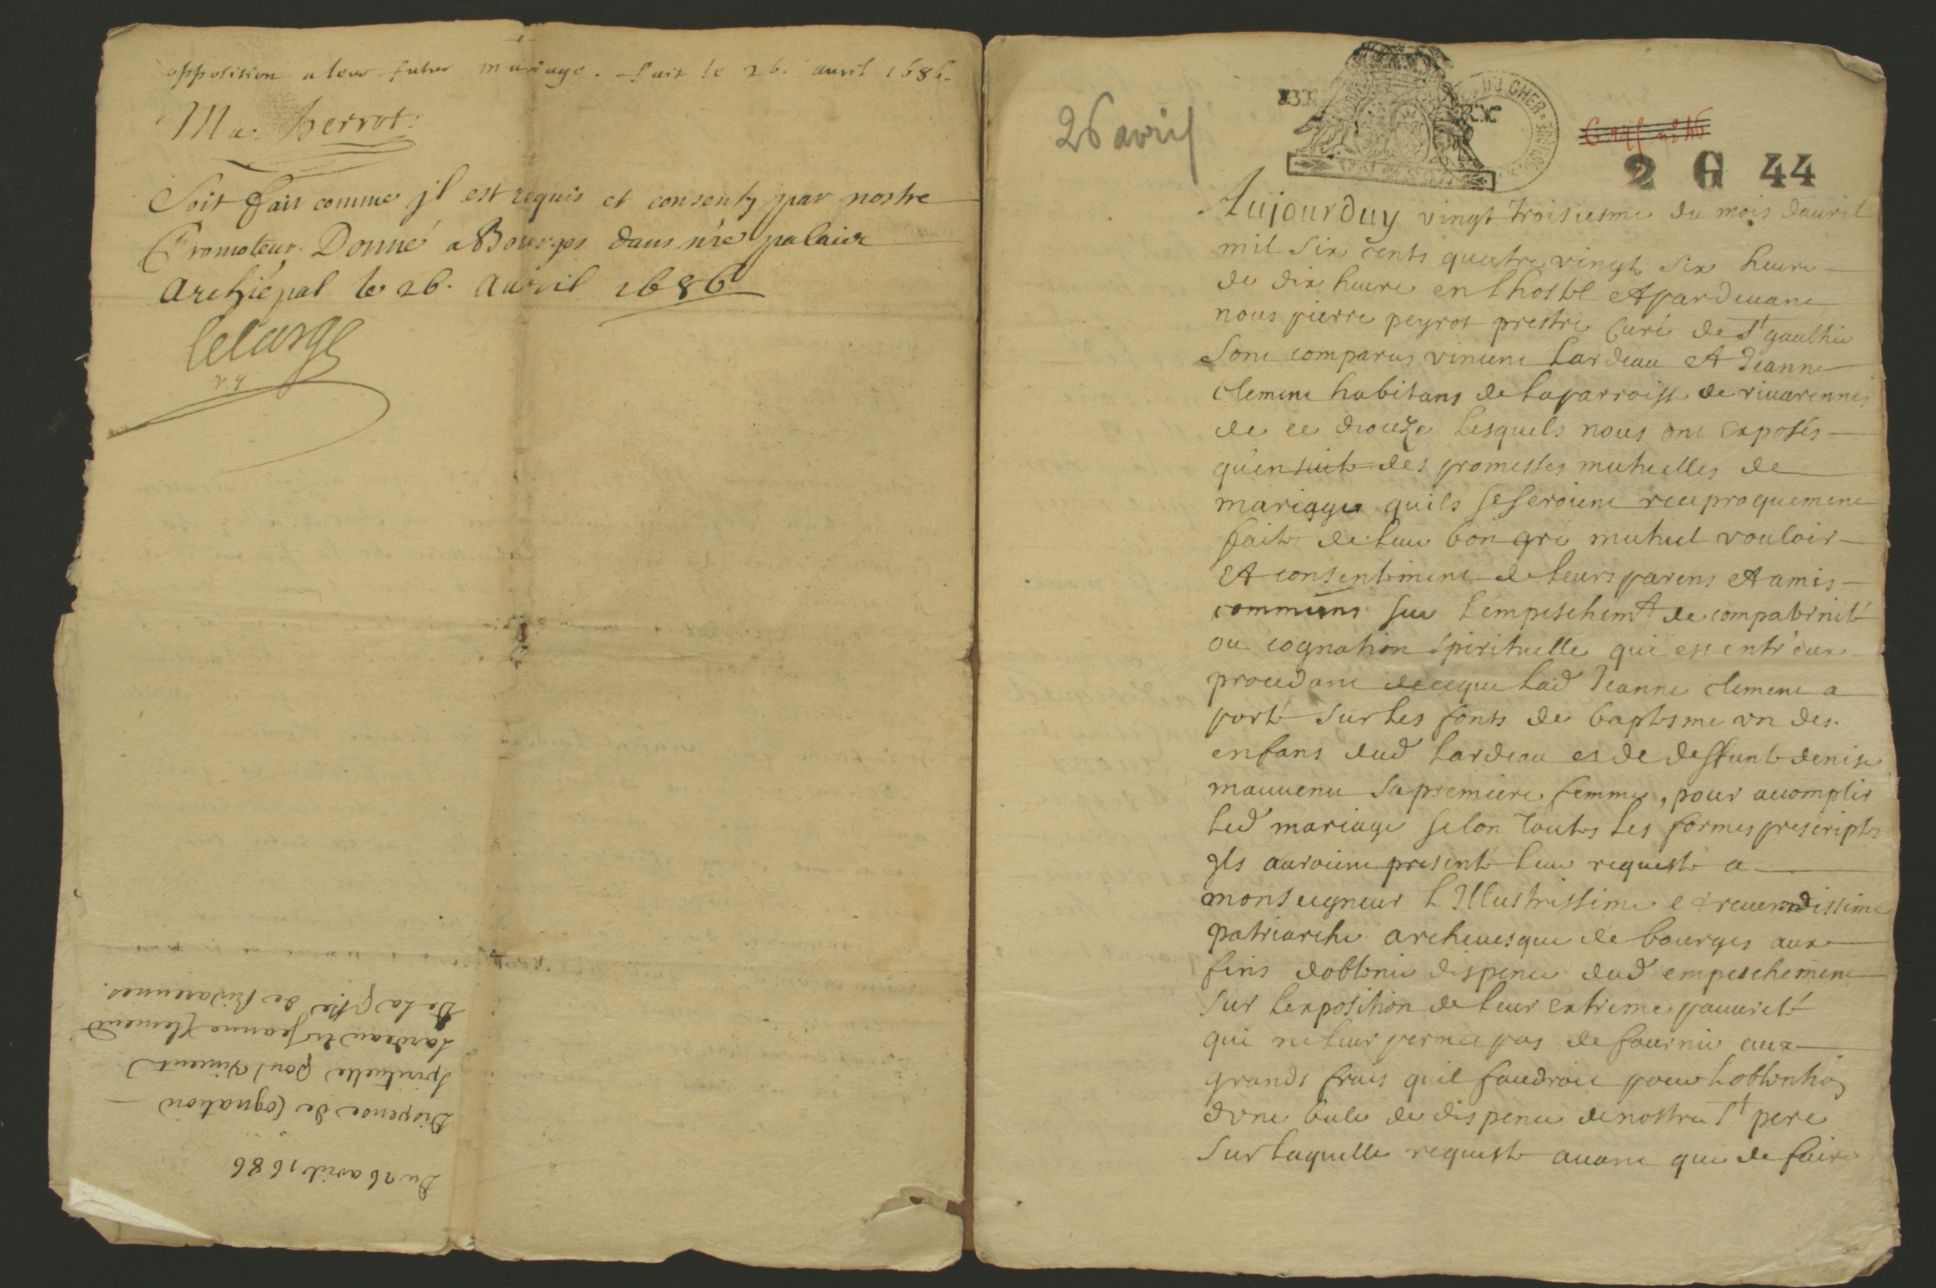 opposition a leur futur mariage. fait le 26. avril 1686.
Ma: Perrot:
Soit fait comme jl est requis et consenty par nostre
Promoteur. Donné a Bourges dans nre palaix
Archiépal le 26. Auvril 1686
Lelarge
v.g
Du 26 avril 1686
Dispence de Cognation
spirituelle pour Vincent
Lardeau et Jeanne Clement
De La psse de Rivarennes.
26 avril
DU CHER
2 G 44
Aujourduy vingt troisiesme du mois dauril
mil six cents quattre vingt six heure
de dix heure en lhostel et pardeuant
nous pierre peyrot prestre curé de St gaultier
sont comparus vincent Lardeau et Jeanne
clement habitans de la parroisse de riuarennes
de ce diocèze lesquels nous ont exposés
qu'en suite des promesses mutuelles de
mariage quils se seroient reciproquement
faite de leur bon gré mutuel vouloir
et consentement de leurs parens et amis
communs sur lempeschemt de compaternité
ou cognation spirituelle qui est entr'eux
procedant de ce que lad Jeanne clement a
porté sur les fonts de baptesme vn des
enfans dud Lardeau et de deffunte denise
mauuenu sa premiere femme, pour accomplir
led mariage selon toutes les formes prescriptes
jls auroient presenté leur requeste a
monseigneur L'Illustrissime et reuerendissime
patriarche archeuesque de bourges aux
fins dobtenir dispence dud empeschement
sur lexposition de leur extreme pauureté
qui ne leur permet pas de fournir aux
grands frais quil faudroit pour lobtention
dvne bule de dispence de nostre St pere
sur laquelle requeste auant que de faire